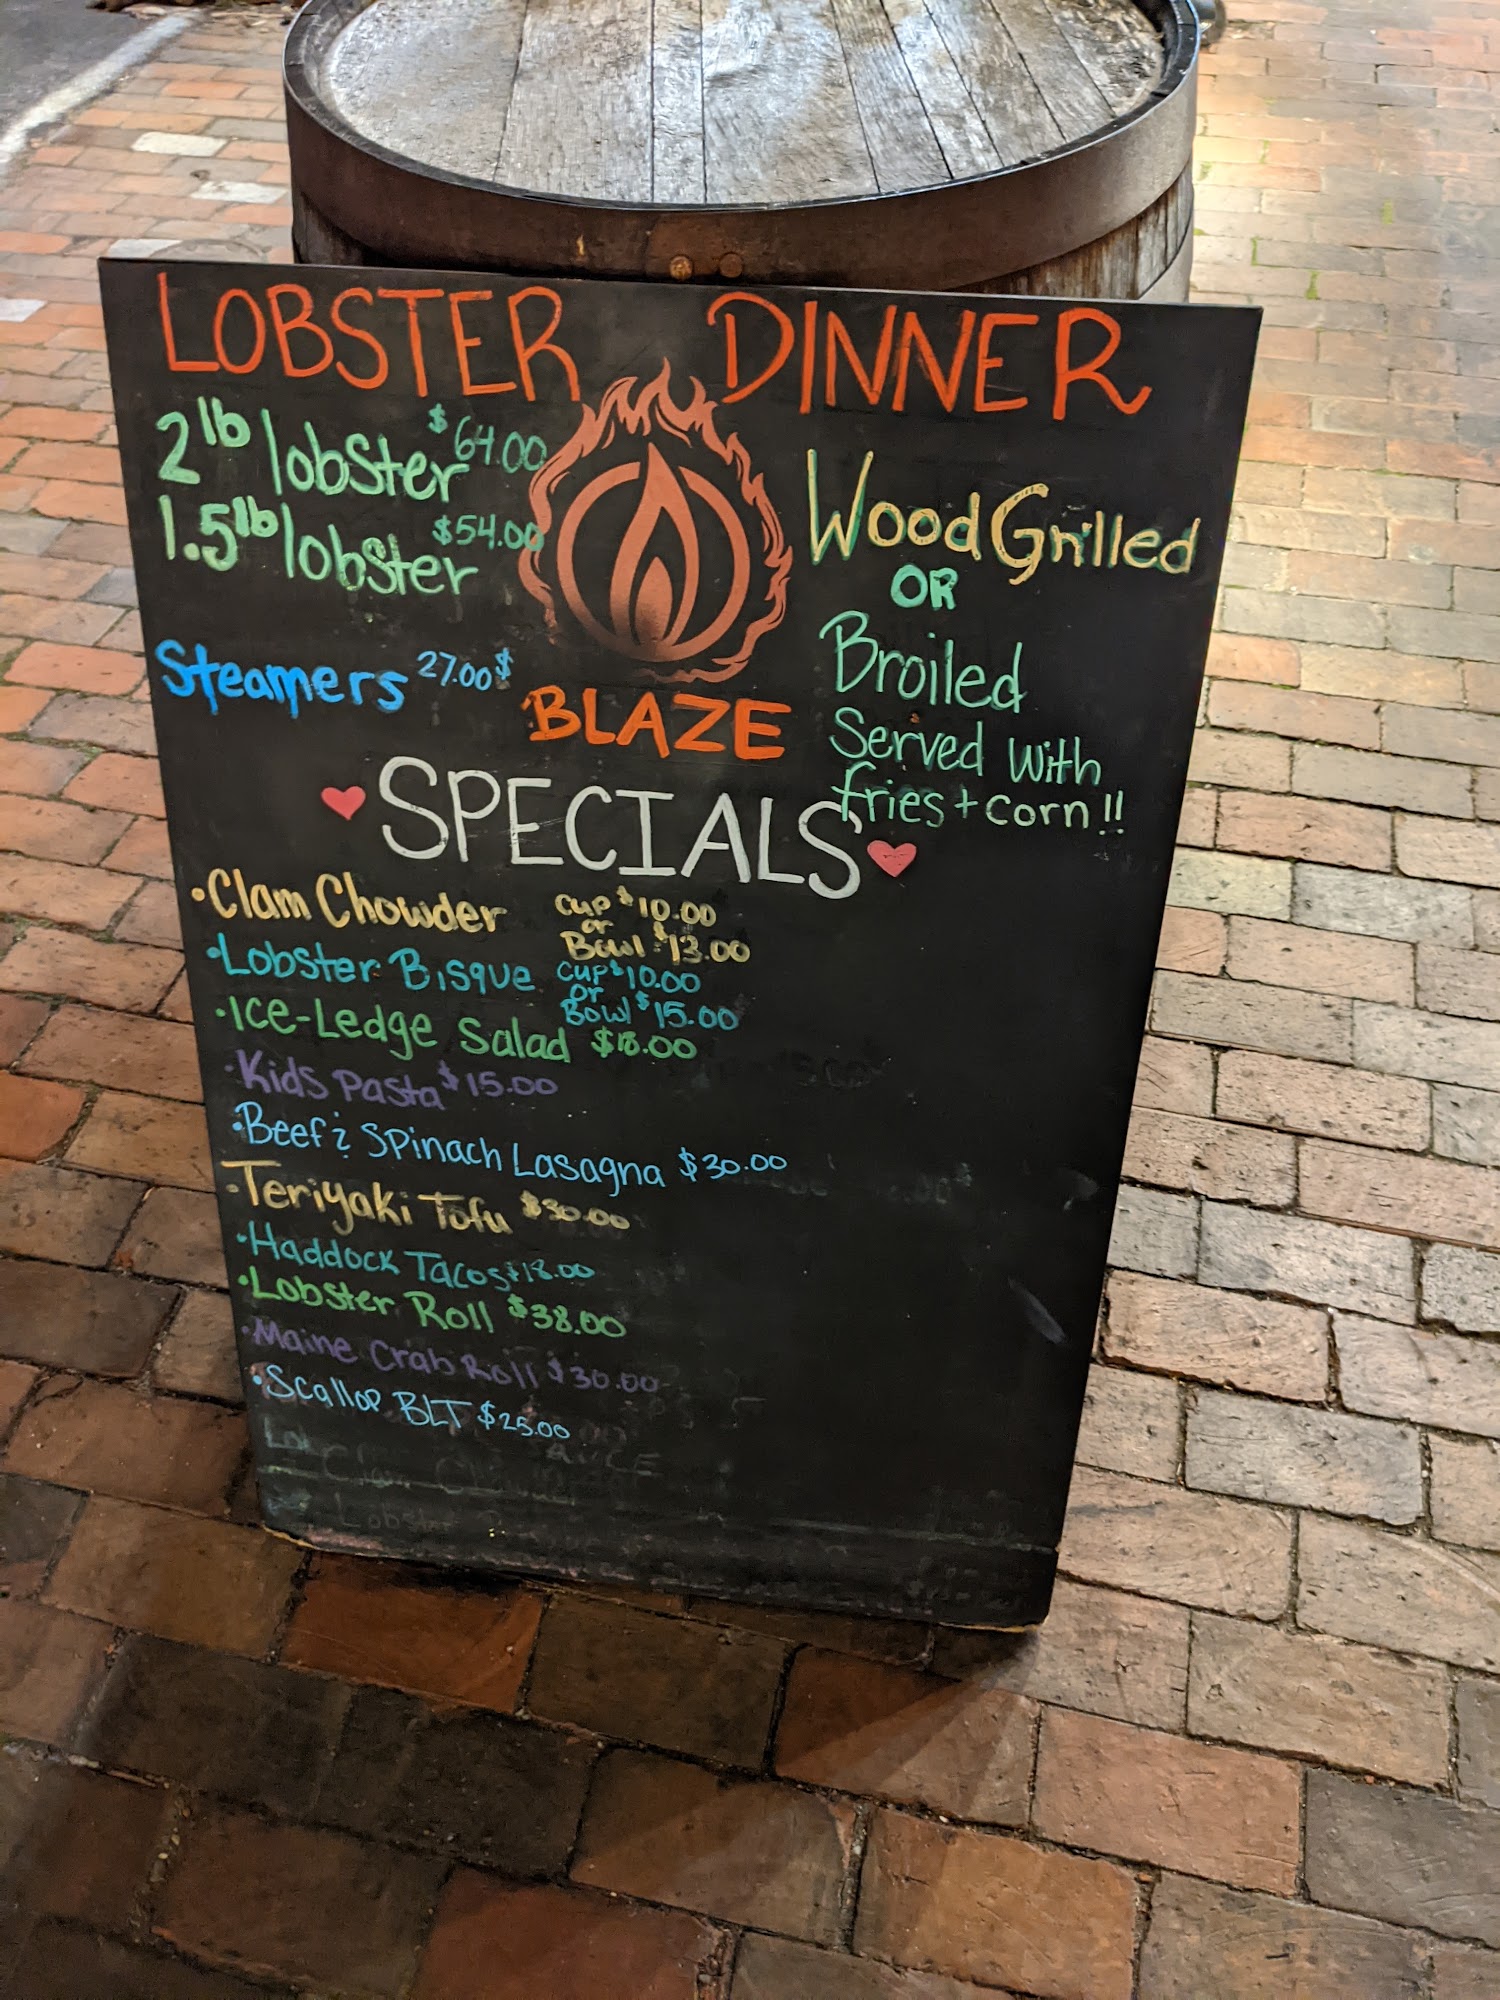 LOBSTER DINNER
2lb lobster $64.00
1.5lb lobster $54.00
Steamers 27.00$
Wood Grilled
OR
Broiled
Served with
fries + corn!!
BLAZE
SPECIALS
•Clam Chowder cup $10.00
or
Bowl $13.00
•Lobster Bisque cup $10.00
or
Bowl $15.00
•Ice-Ledge Salad $18.00
•Kids Pasta $15.00
•Beef & Spinach Lasagna $30.00
-Teriyaki Tofu $30.00
•Haddock Tacos $18.00
•Lobster Roll $38.00
•Maine Crab Roll $30.00
•Scallop BLT $25.00